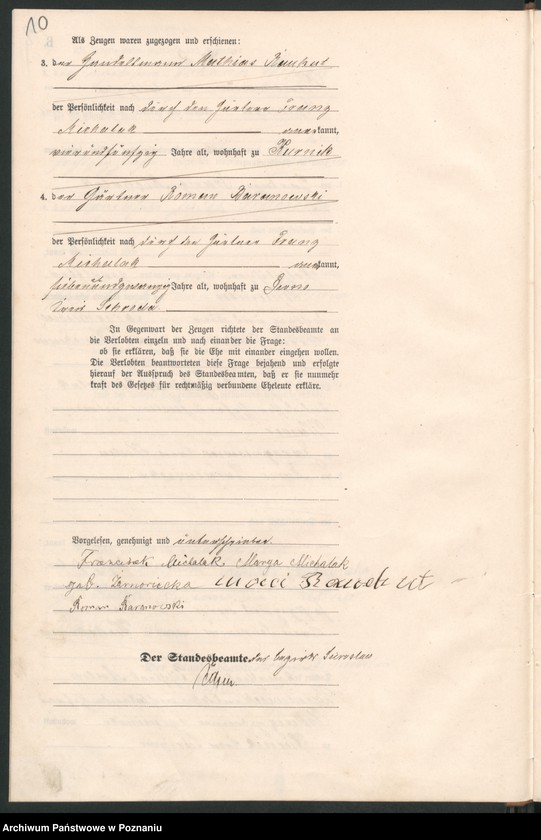 10
Als Zeugen waren zugezogen und erschienen:
3. der Handelsmann Mathias Raukut
der Persönlichkeit nach durch den Gärtner Franz
Michalak aner kannt,
vierundfünfzig Jahre alt, wohnhaft zu Kurnik
4. der Gärtner Roman Baranowski
der Persönlichkeit nach durch den Gärtner Franz
Michalak aner kannt,
siebenundzwanzig Jahre alt, wohnhaft zu
Kreis Schroda.
In Gegenwart der Zeugen richtete der Standesbeamte an
die Verlobten einzeln und nach einander die Frage:
ob sie erklären, daß sie die Ehe mit einander eingehen wollen.
Die Verlobten beantworteten diese Frage bejahend und erfolgte
hierauf der Ausspruch des Standesbeamten, daß er sie nunmehr
kraft des Gesetzes für rechtmäßig verbundene Eheleute erkläre.
Vorgelesen, genehmigt und unterschrieben
Franciszek Michalak Marya Michalak
geb.
Roman Baranowski
Der Standesbeamte.
Archiwum Państwowe w Poznaniu